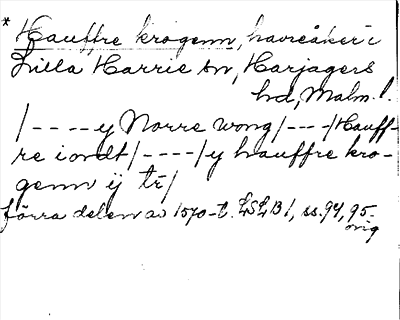 * Hauffre krogenn, havreåker i
Lilla Harrie sn, Harjagers
hd, Malm. l.
/----y Norre wong/---/Hauff-
re iordt/----/y hauffre kro-
genn ij tr/
förra delen av 1570-t. LSLB1, ss. 94, 95.
orig